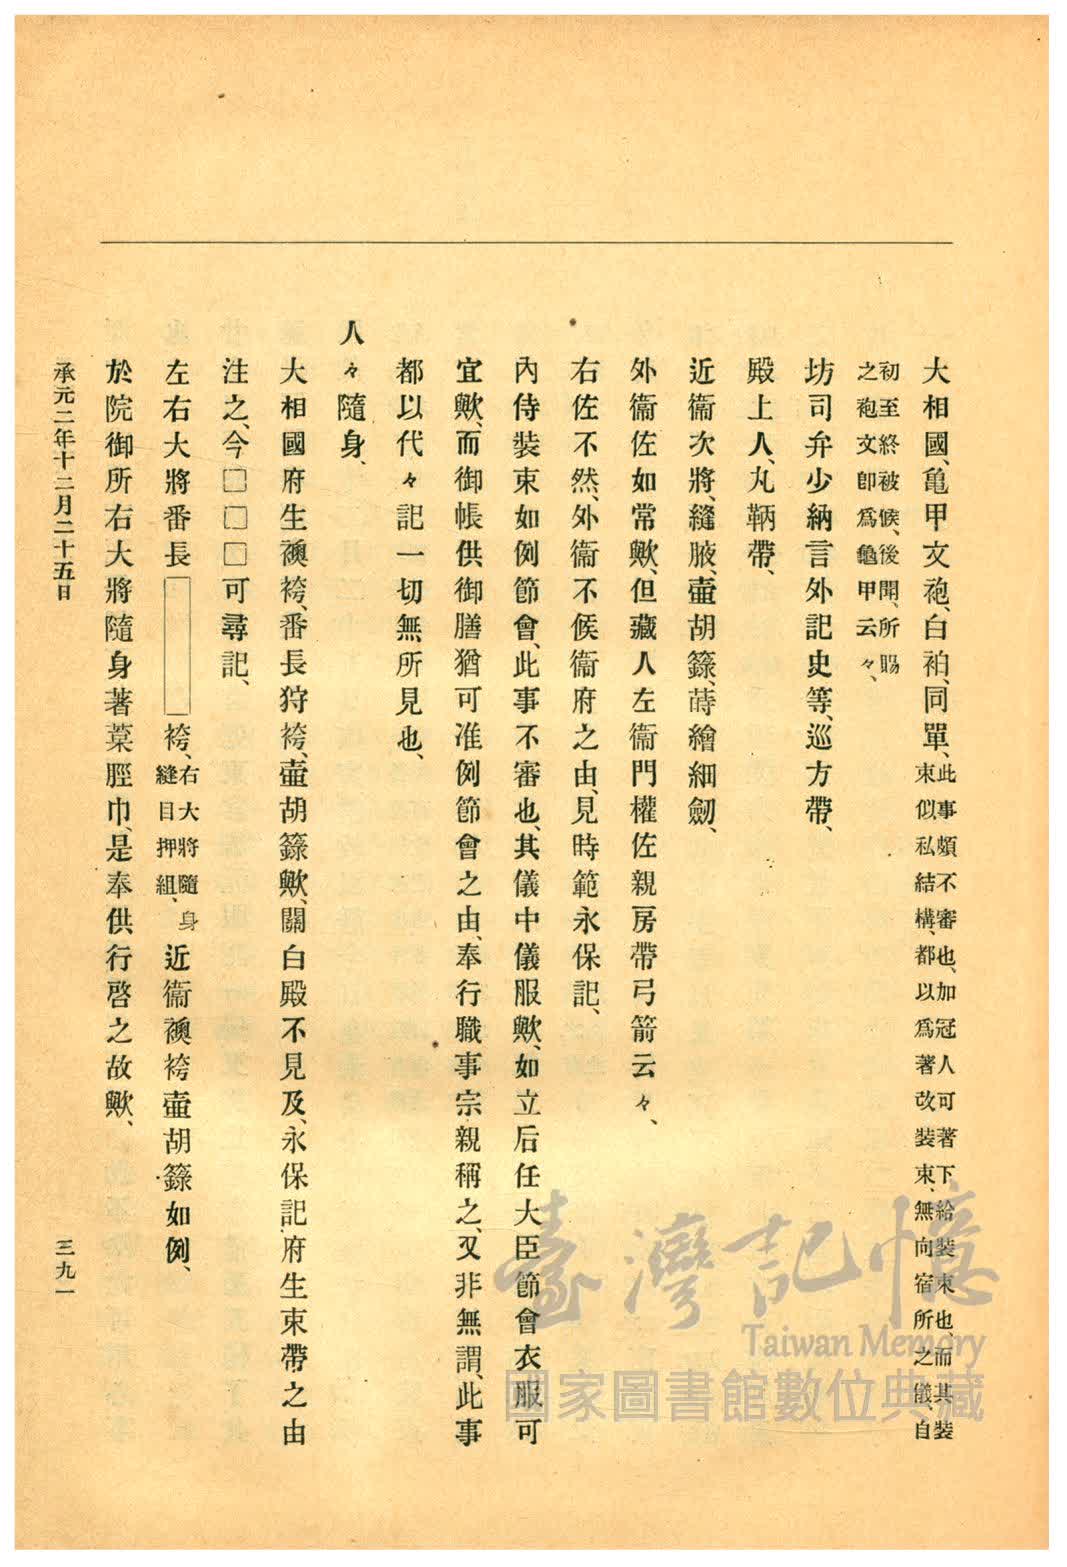 大相國、亀甲文袍、白袙、同單、此事頗不審也、加冠人可著下給裝束也、而其裝
束似私結構、都以爲著改裝束、無向宿所之儀、自
初至終被候、後聞、所賜
之袍文卽爲龜甲云々、
坊司弁少納言外記史等、巡方帶、
殿上人、丸鞆帶、
近衞次將、縫腋、壷胡籙、蒔繪細劒、
外衞佐如常歟、但藏人左衞門權佐親房帶弓箭云々、
右佐不然、外衞不候衞府之由、見時範永保記、
內侍裝束如例節會、此事不審也、其儀中儀服歟、如立后任大臣節會衣服可
宜歟、而御帳供御膳猶可准例節會之由、奉行職事宗親稱之、又非無謂、此事
都以代々記一切無所見也、
人々隨身、
大相國府生襖袴、番長狩袴、壷胡籙歟、關白殿不見及、永保記府生束帶之由
注之、今□□□可尋記、
左右大將番長□袴、右大將隨身
縫目押組、近衞襖袴壷胡籙如例、
於院御所右大將隨身著藁脛巾、是奉供行啓之故歟、
承元二年十二月二十五日
三九一
臺灣記憶
Taiwan Memory
國家圖書館數位典藏